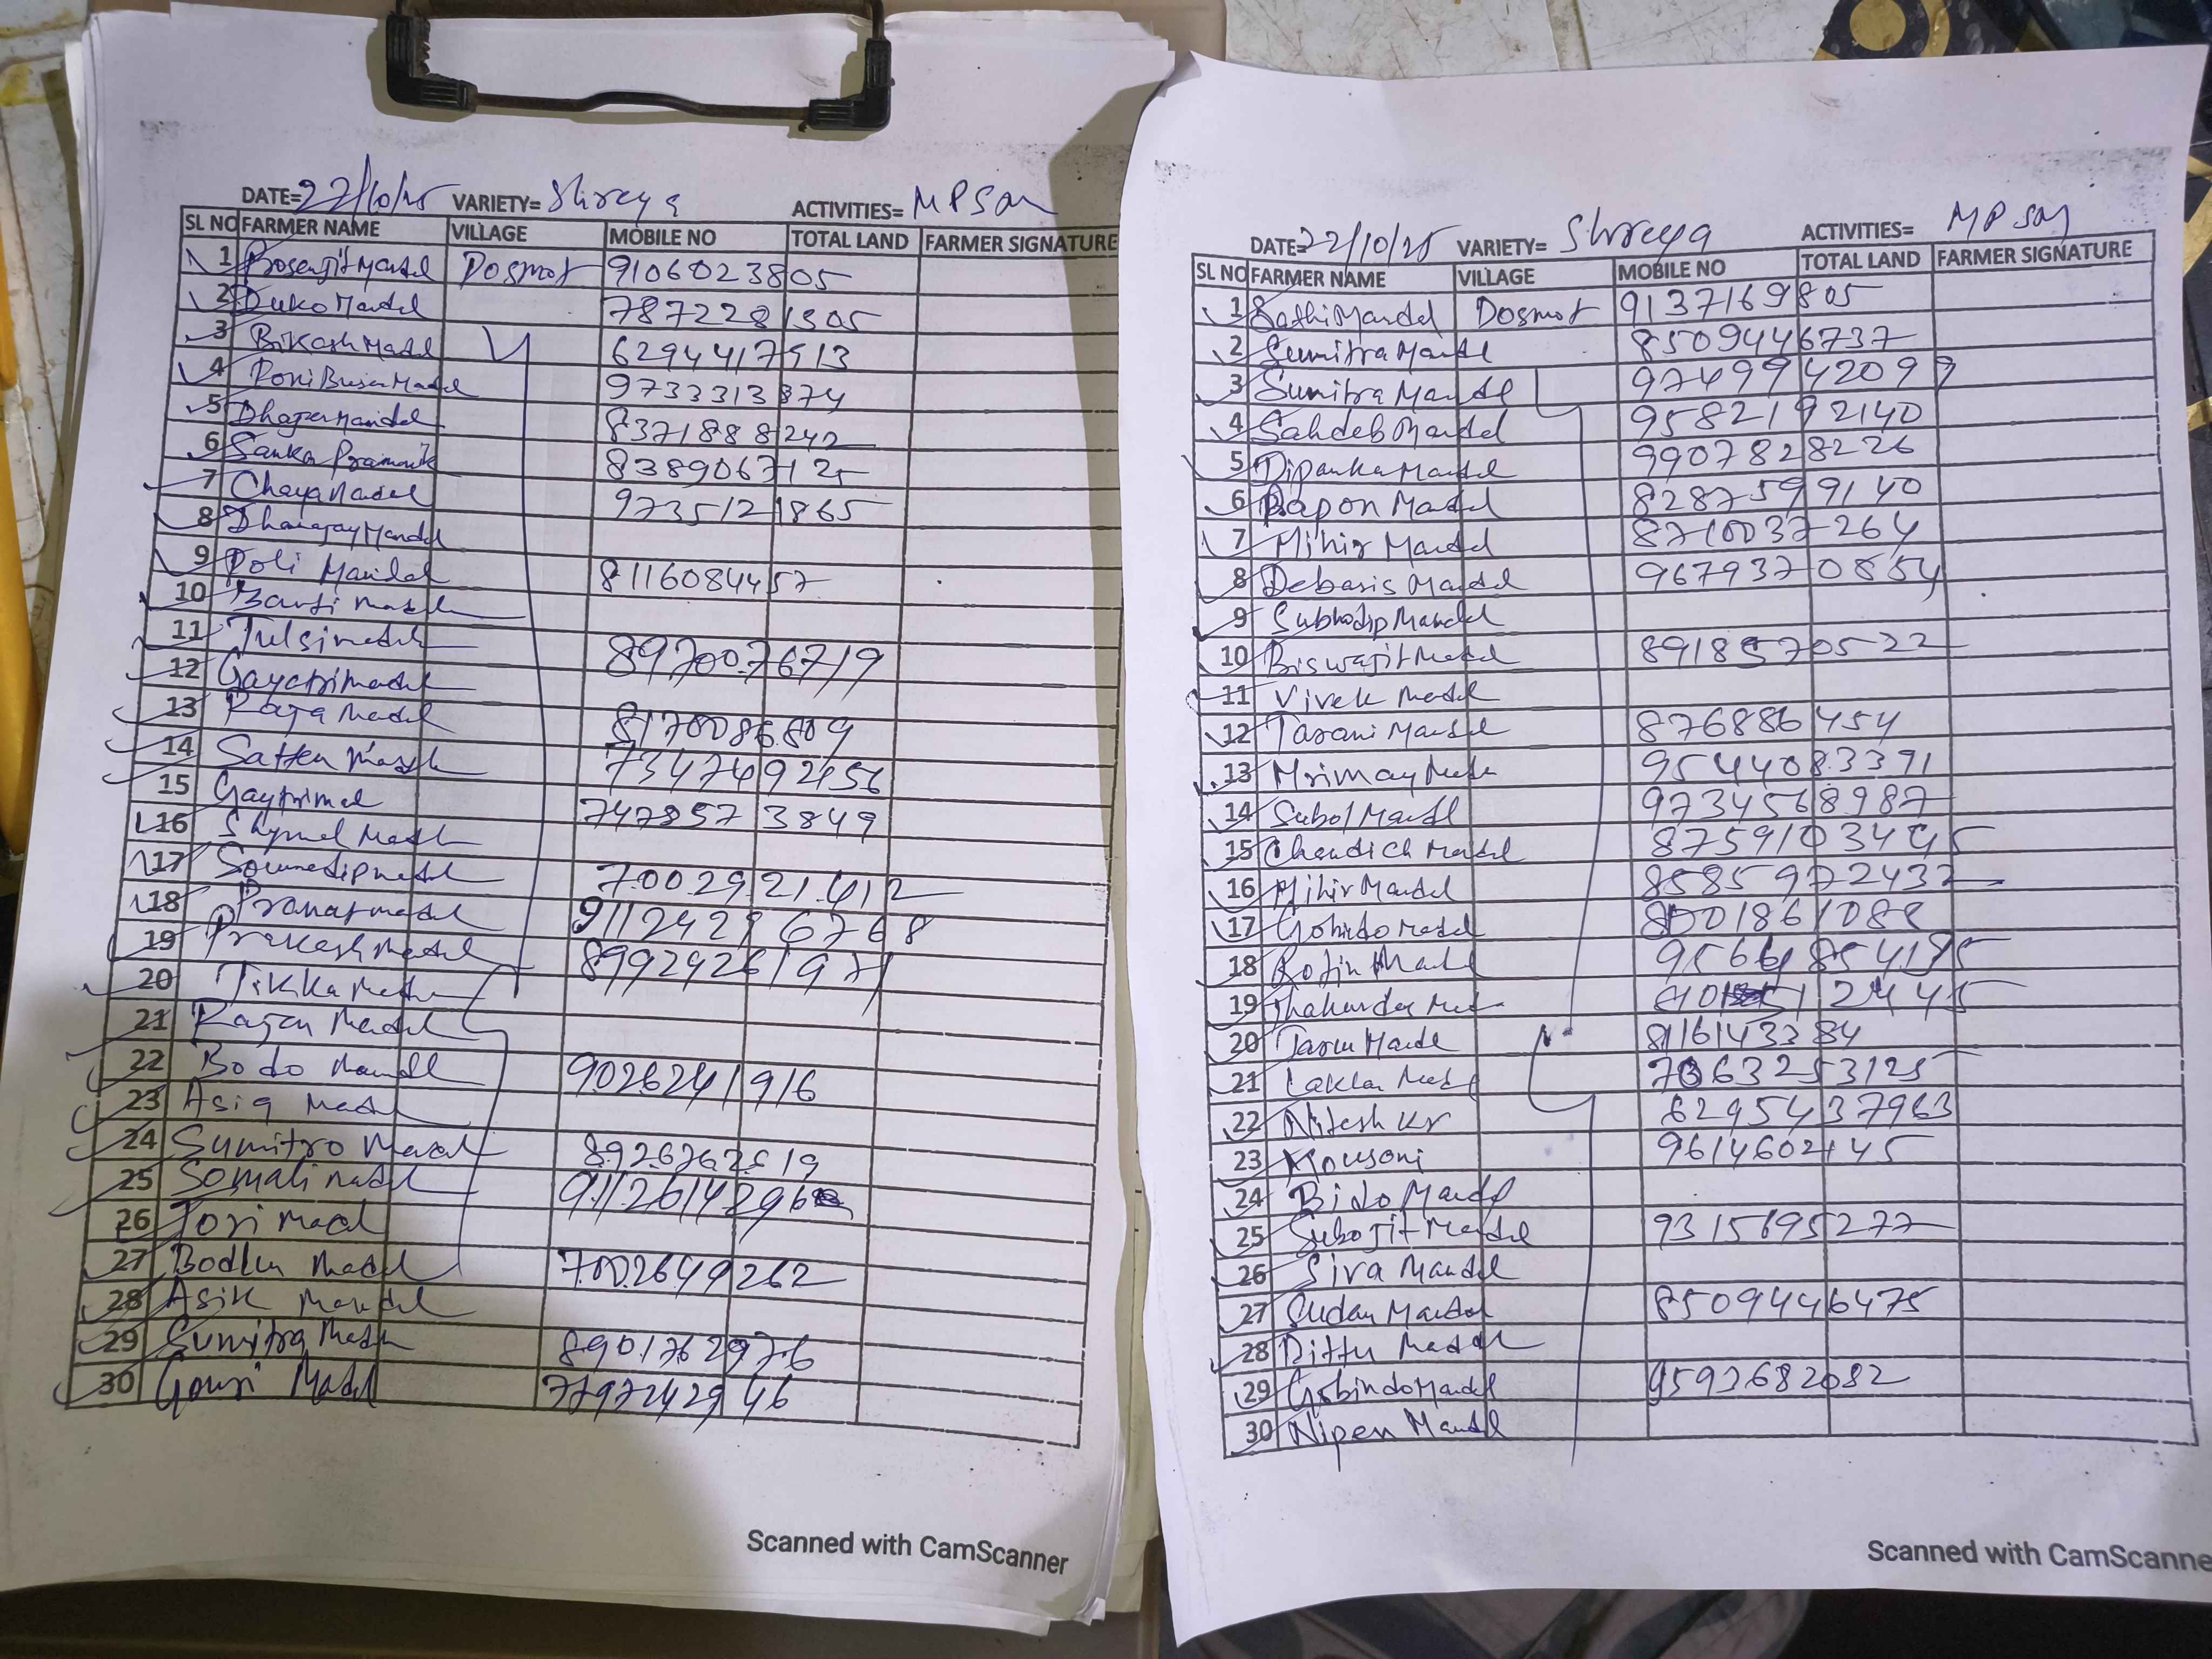 DATE=22/10/25 VARIETY= Shreya ACTIVITIES= MPSon
SL NO FARMER NAME VILLAGE MOBILE NO TOTAL LAND FARMER SIGNATURE
1 Bosenjit Mandal Dosmot 9106023805
2 Duko Mandal 7872281305
3 Bikash Madal 6294417913
4 9733313874
5 Mandal 8371888242
6 Sanka Pramanik 8389067125
7 Chaya Madal 9735121865
8 Dhananjay Mandal
9 Poli Mandal 8116084457
10
11 Tulsi madal 8970076719
12 Gayatri madal
13 Raja Madal 8170086809
14 7347492456
15 7478573849
16
17 Soumedip madal 7002921412
18 Pranat madal 911242967 68
19 Prakash madal 89929261971
20 Tikka
21 Rajen Madal
22 Bodo Mandl 9026241916
23 Asiq
24 Sumitro Madal 8926762619
25 Somali madal 9112614296
26 Madal
27 Madal 7002649262
28 Asik Mandal
29 Sumitra 8901762976
30 Gouri Madal 7797242946
Scanned with CamScanner
DATE=22/10/25 VARIETY= Shreya ACTIVITIES= MP son
SL NO FARMER NAME VILLAGE MOBILE NO TOTAL LAND FARMER SIGNATURE
1 Sathi Mandal Dosmot 9137169805
2 Sumitra Mandal 8509446737
3 Sumitra Mandal 97499942099
4 Sahdeb Mandal 9582192140
5 Dipanka Mandal 9907828226
6 Bapon Mandal 8287599140
7 Mihir Mandal 8710037264
8 Debasis Mandal 9679370854
9 Subhodip Mandal
10 Biswajit Madal 8918570522
11 Vivek Madal
12 Tarani Mandal 876886454
13 9544083391
14 Subol Mandl 9734568987
15 Madal 8759103445
16 Mihir Mandal 8585972432
17 Gobindo Madal 8001861088
18
19
20 8116143384
21 7063253125
22 Nitesh Kr 6295437963
23 Mousoni 9614602145
24 Bido Mandal
25 Subojit Mandal 9315695277
26 Siva Mandal
27 Sudan Mandal 8509446475
28 Dittu Madal
29 Gobindo Mandal 9593682082
30 Nipen Mandal
Scanned with CamScanne